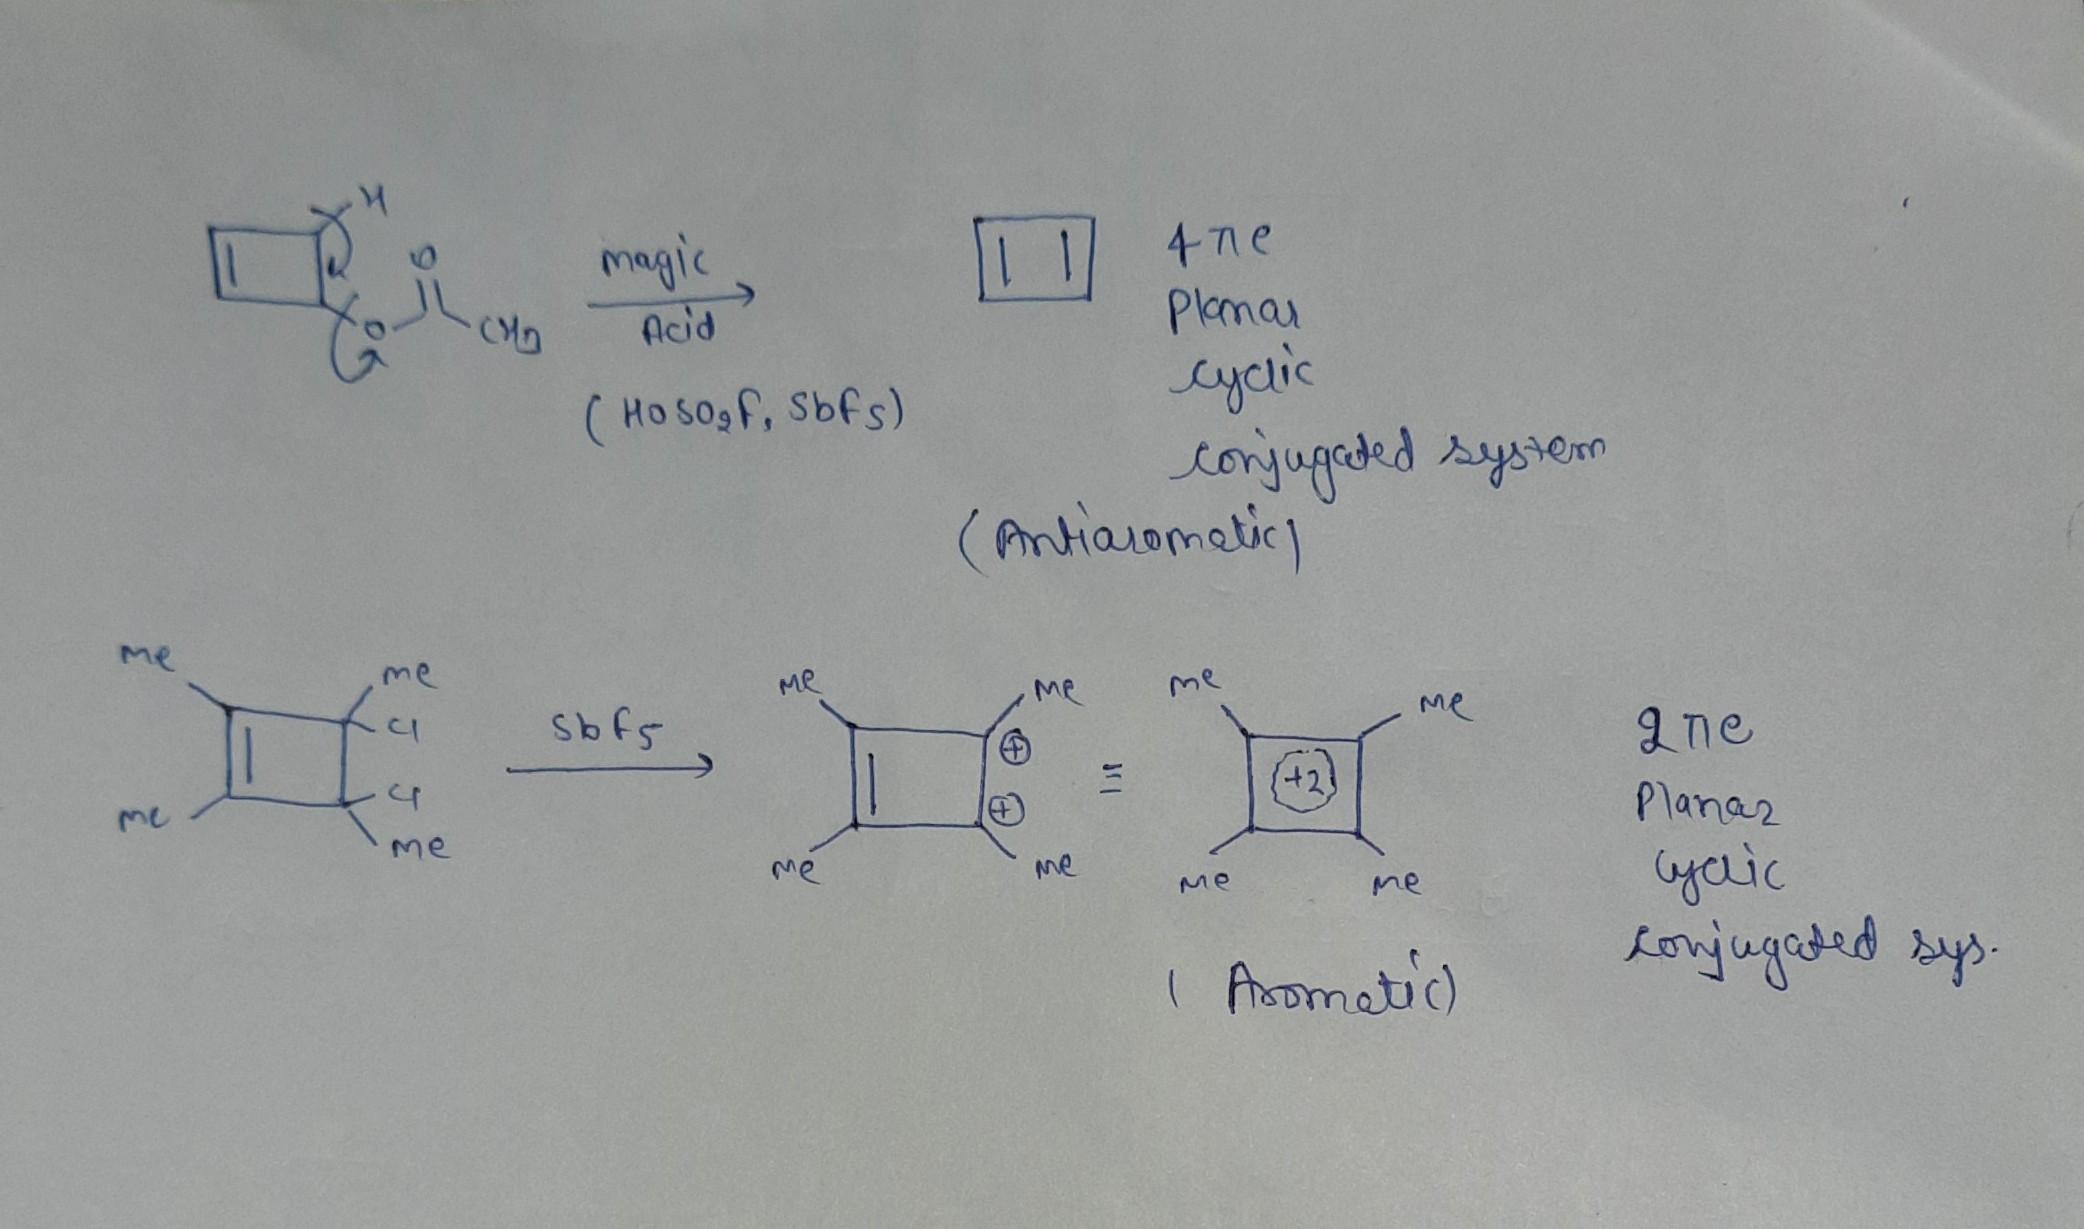 H
O
O
CH3
magic
Acid
(HOSO2F, SbF5)
4πe
Planar
cyclic
conjugated system
(Antiaromatic)
me
me
Cl
Cl
me
me
SbF5
me
me
⊕
⊕
me
me
≡
me
me
+2
me
me
(Aromatic)
2πe
Planar
cyclic
conjugated sys.